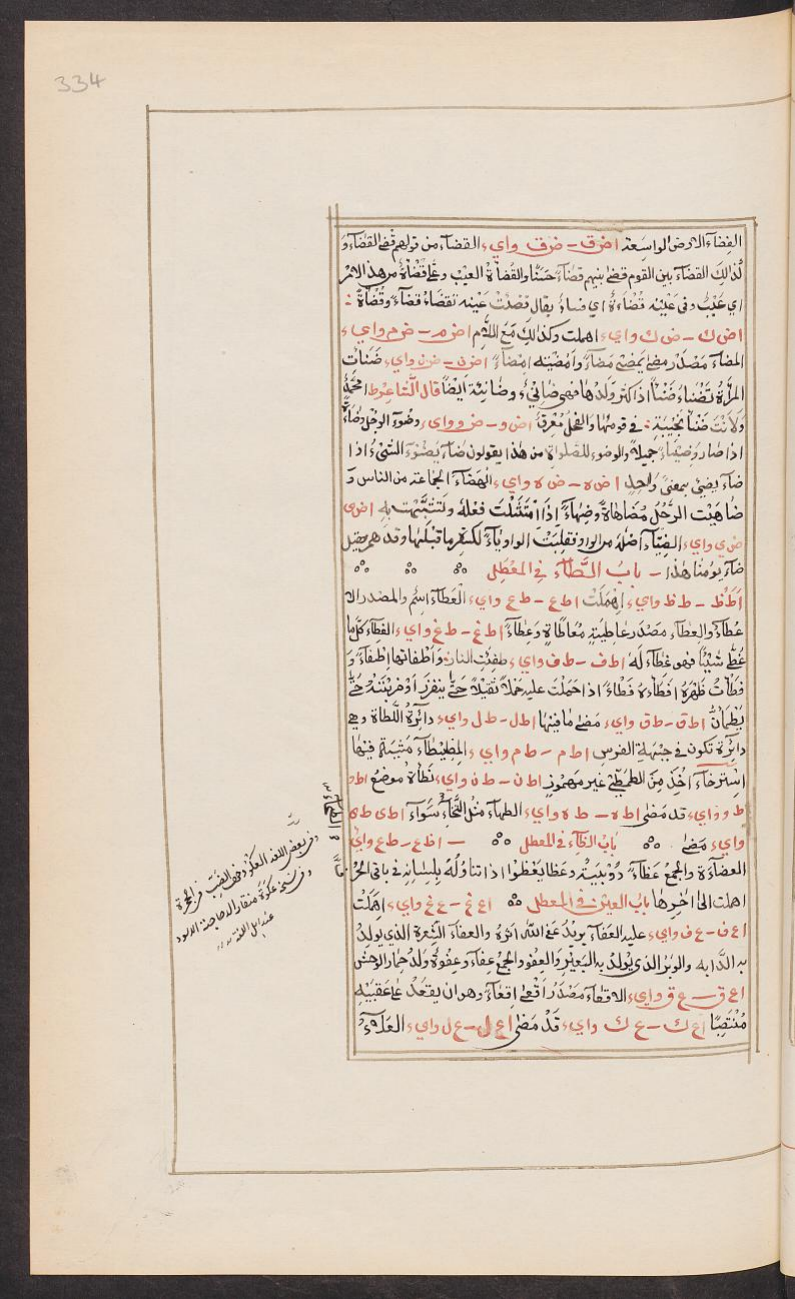 334
الفضاء الارض الواسعة اض ق - ض ق واي، القضاء من قولهم قضى القضاء و
كذلك القضاء بين القوم قضى بينهم قضاءً حسنًا والقُضاة العيب وعلى قضاة من هذا الامر
اي عَيْبٌ وفى عينه قُضاءة اي فساد يقال قضئت عينه تقضأ قضاءً وقضاةً
اض ك - ض ك واي، اهملت وكذلك مع اللام اض م - ض م واي،
المضاء مصدر مضى يمضى مضاءً وامضيته امضاءً اض ن - ض ن واي، ضنات
المرأة تضناء ضَنْأً اذا كثر ولدها فهى ضانِئ وضانئة ايضًا قال الشاعر
في قومها والفحل مُعْرِقُ اض و - ض و واي، وضوء الرجل وضاءة
اذا صار وضيئًا جميلا والوضوء للصلواة من هذا يقولون ضاء يضوء الشئ اذا
ضاء يضئ بمعنى واحد اض ه - ض ه واي، الهضاء الجماعة من الناس و
ضاهيت الرجل مضاهاة وضهاءً اذا امتثلت فعله وتشبهت به اض ي
ض ي واي، الضياء اصله من الواو فقلبت الواو ياءً لكسر ما قبلها وقد هم
ضاء يومنا هذا - باب الطاء في المعطل
اط ظ - ط ظ واي، اهملت اط ع - ط ع واي، العطاء اسم والمصدر الا
عطاء والعِطاء مصدر عاطيته معاطاةً وعِطاءً اط غ - ط غ واي، الغطاء كل ما
غطى شيئًا فهو غطاء له اط ف - ط ف واي، طفئت النار واطفاتها اطفاءً و
فطات ظهره افطاءه فطاءً اذا حملت عليه حملا ثقيلا حتى ينفزر او ضربته حتى
يطمان اط ق - ط ق واي، مضى ما فيها اط ل - ط ل واي، دائرة اللطاة وهى
دائرة تكون في جبهة الفرس اط م - ط م واي، المطيطاء مشية فيها
استرخاء أخذ من المطيطى غير مهموز اط ن - ط ن واي، نطاة موضع اط و
ط و واي، قد مضى اط ه - ط ه واي، الطهاء مثل الطخاء سواء اط ى ط ى
واي، مضى باب الظاء في المعطل - اظ ع - ظ ع واي
العضاءة والجمع عظاء دويبة وعظا يعظوا اذا تناوله بلسانه في باقى الحرف
اهملت الى اخرها باب العين في المعطل اع غ - ع غ واي، اهملت
اع ف - ع ف واي، عليه العفاء يريد عفى الله اثره والعفاء الشعرة الذي يولد
به الدابه والوبر الذى يولد به البعير والعفو والجمع عفاء وعفوة ولد حمار الوحش
اع ق - ع ق واي، الاقعاء مصدر اقعى اقعاءً وهو ان يقعد على عقبيه
منتصبًا اع ك - ع ك واي، قد مضى اع ل - ع ل واي، العلاء